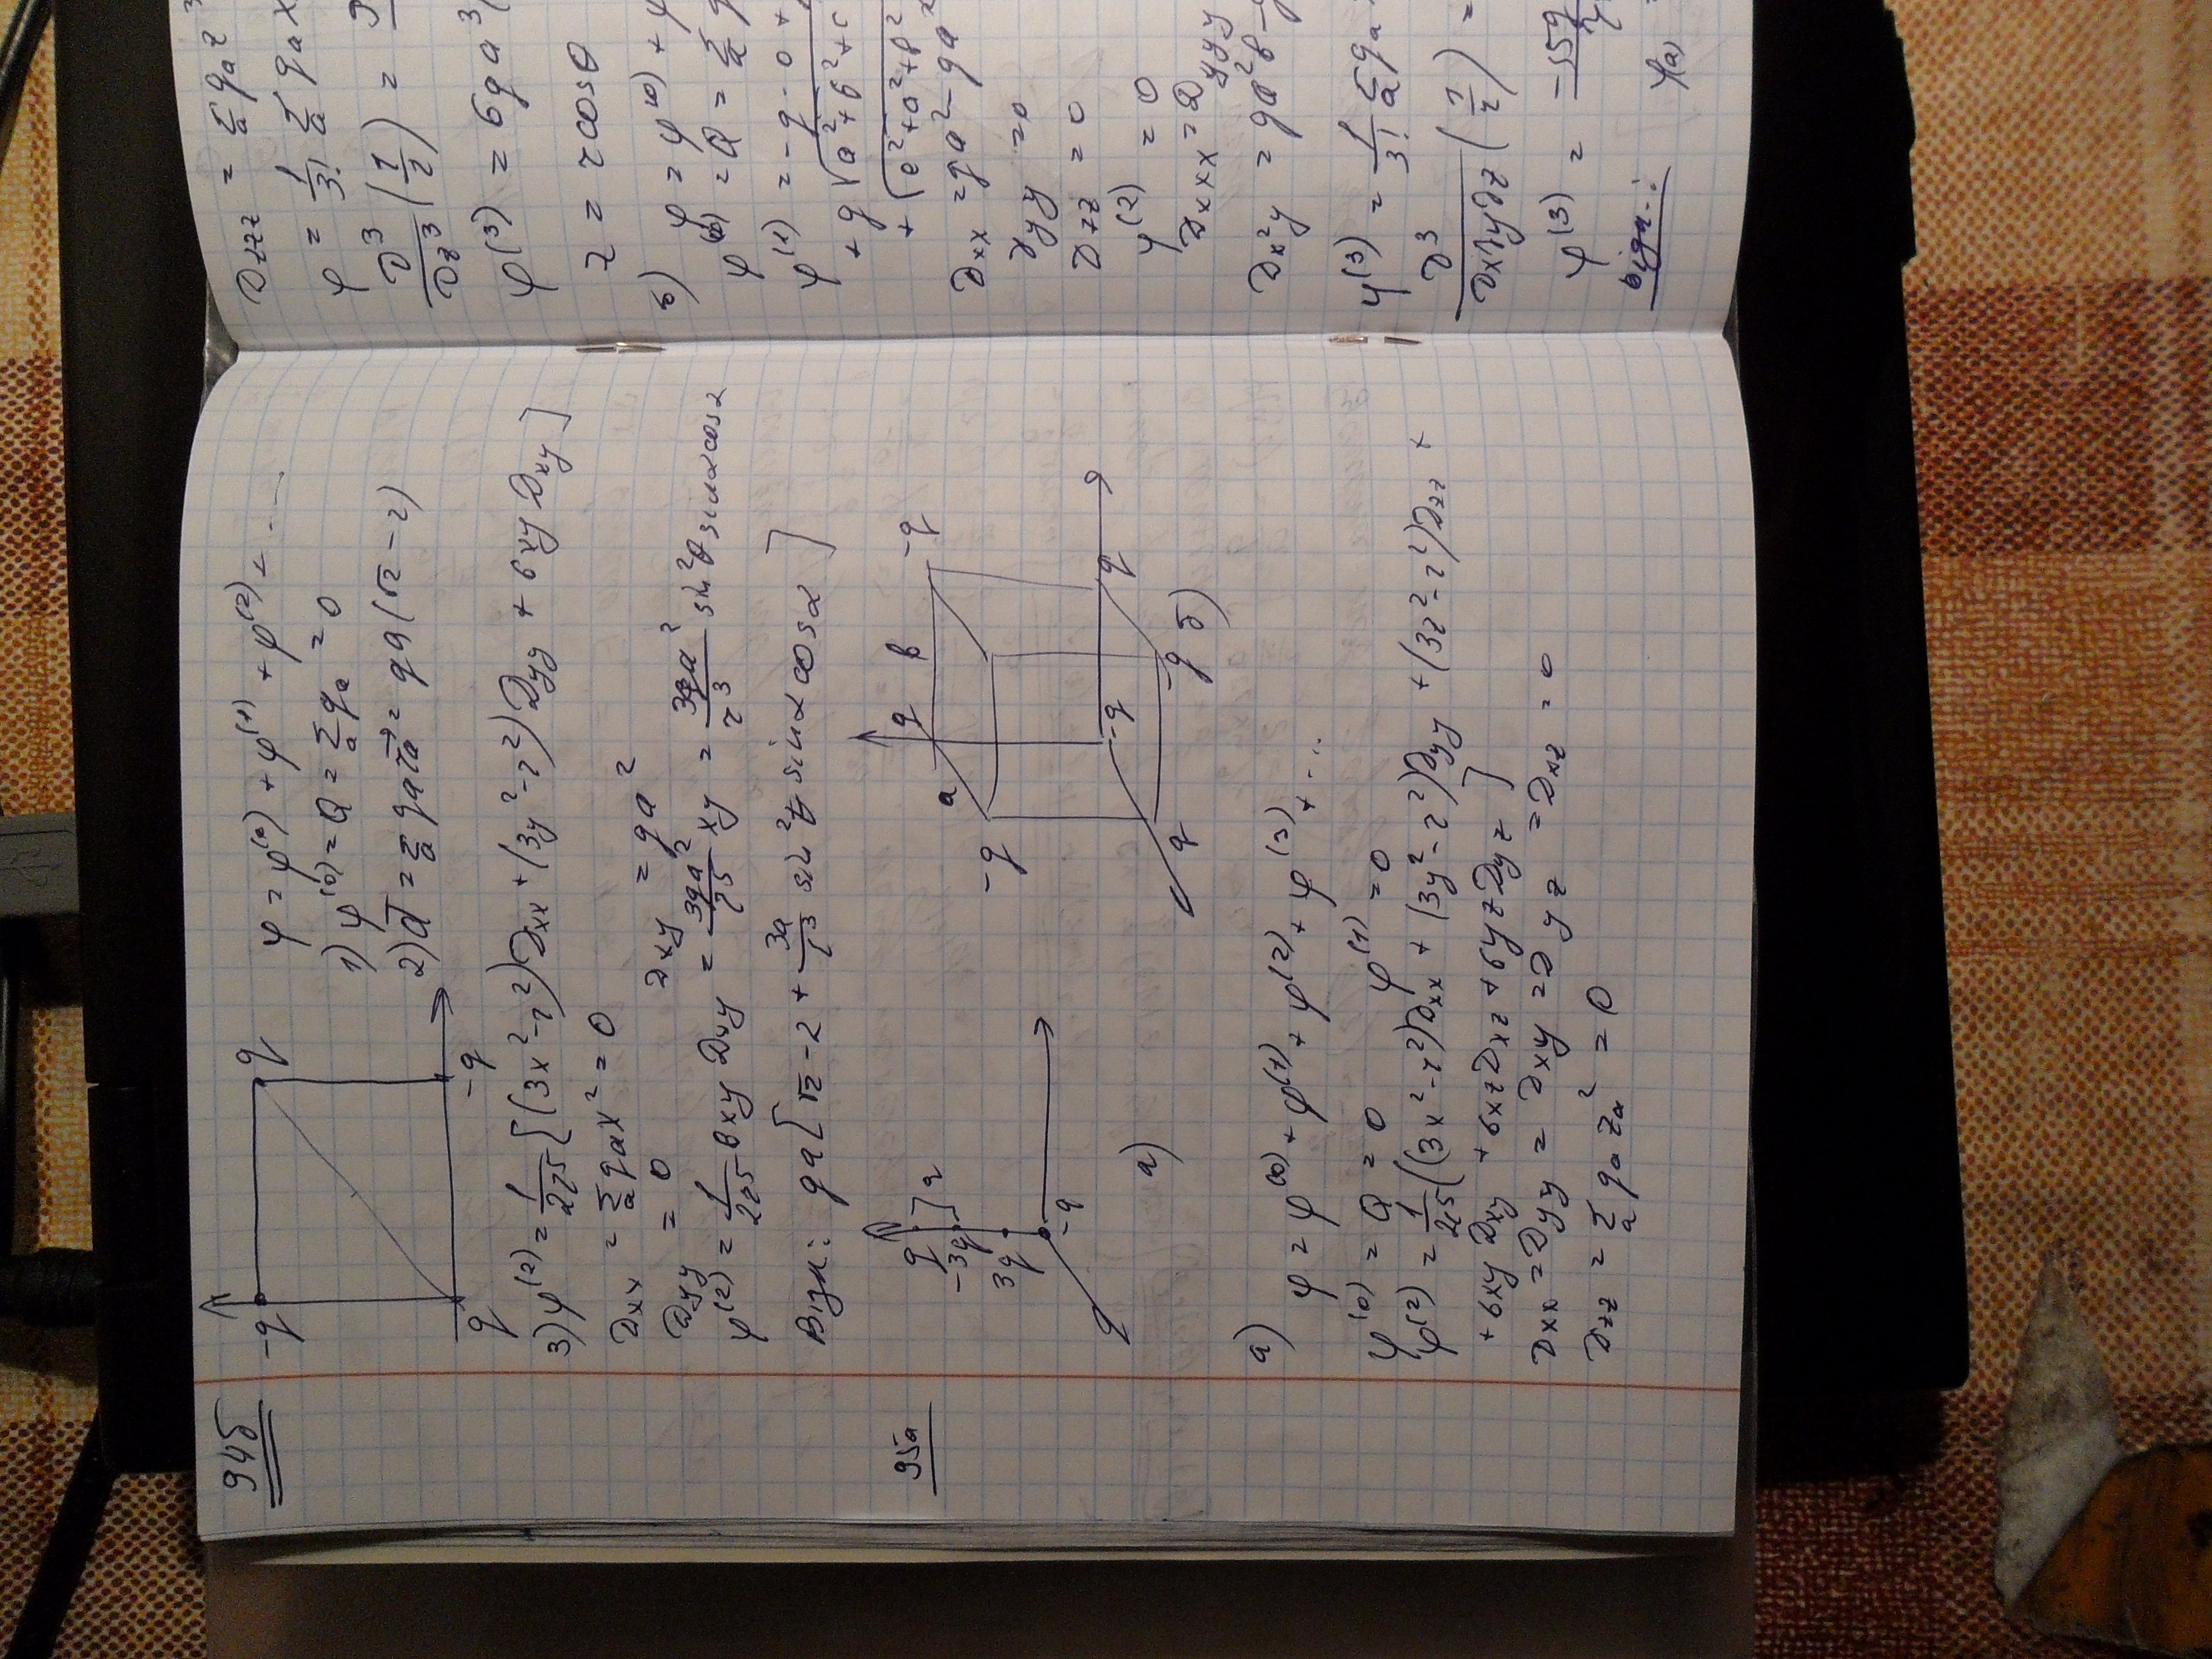 94б
φ = φ^(0) + φ^(1) + φ^(2) + ....
1) φ^(0) = Q = Σ_a q_a = 0
2) d⃗ = Σ_a q_a r⃗_a = qa(√2 - 2)
-q
q
q
-q
3) φ^(2) = 1/2r^5 [(3x^2 - r^2) D_xx + (3y^2 - r^2) D_yy + 6xy D_xy]
D_xx = Σ_a q_a x^2 = 0
D_yy = 0
D_xy = qa^2
φ^(2) = 1/2r^5 6xy D_xy = 3qa^2/r^5 xy = 3qa^2/r^3 sin^2θ sinα cosα
Відп.: qa[√2 - 2 + 3a/r^3 sin^2θ sinα cosα]
95а
q
-3q
3q
-q
]a
а)
a
q
b
-q
-q
-q
q
q
-q
б)
а)
φ = φ^(0) + φ^(1) + φ^(2) + φ^(3) + ...
φ^(0) = Q = 0
φ^(1) = 0
φ^(2) = 1/2r^5 ((3x^2 - r^2) D_xx + (3y^2 - r^2) D_yy + (3z^2 - r^2) D_zz +
+ 6xy D_xy + 6xz D_xz + 6yz D_yz]
D_xx = D_yy = D_xy = D_yz = D_xz = 0
D_zz = Σ_a q_a z_a^2 = 0
D_zzz = Σ_a q_a z
φ = 1/3! Σ_a q_a x
∂^3/∂z^3 (1/r) =
φ^(3) = 6qa^3
z = r cosθ
б)
φ = φ^(0) + φ
φ^(0) = Q = Σ_a q
φ^(1) = -q · 0 +
+ q √(a^2 + b^2 + c
+ √(a^2 + a^2 + b^2
D_xx = qa^2 - qa
D_yy = 0
D_zz = 0
φ^(2) = 0
D_xxx = D_yyy
D_x^2y = qa^2b - q
φ^(3) = 1/3! Σ_a q_a
∂^3/∂x∂y∂z (1/r) =
φ^(3) = -15q
Відп.:
φ_а)